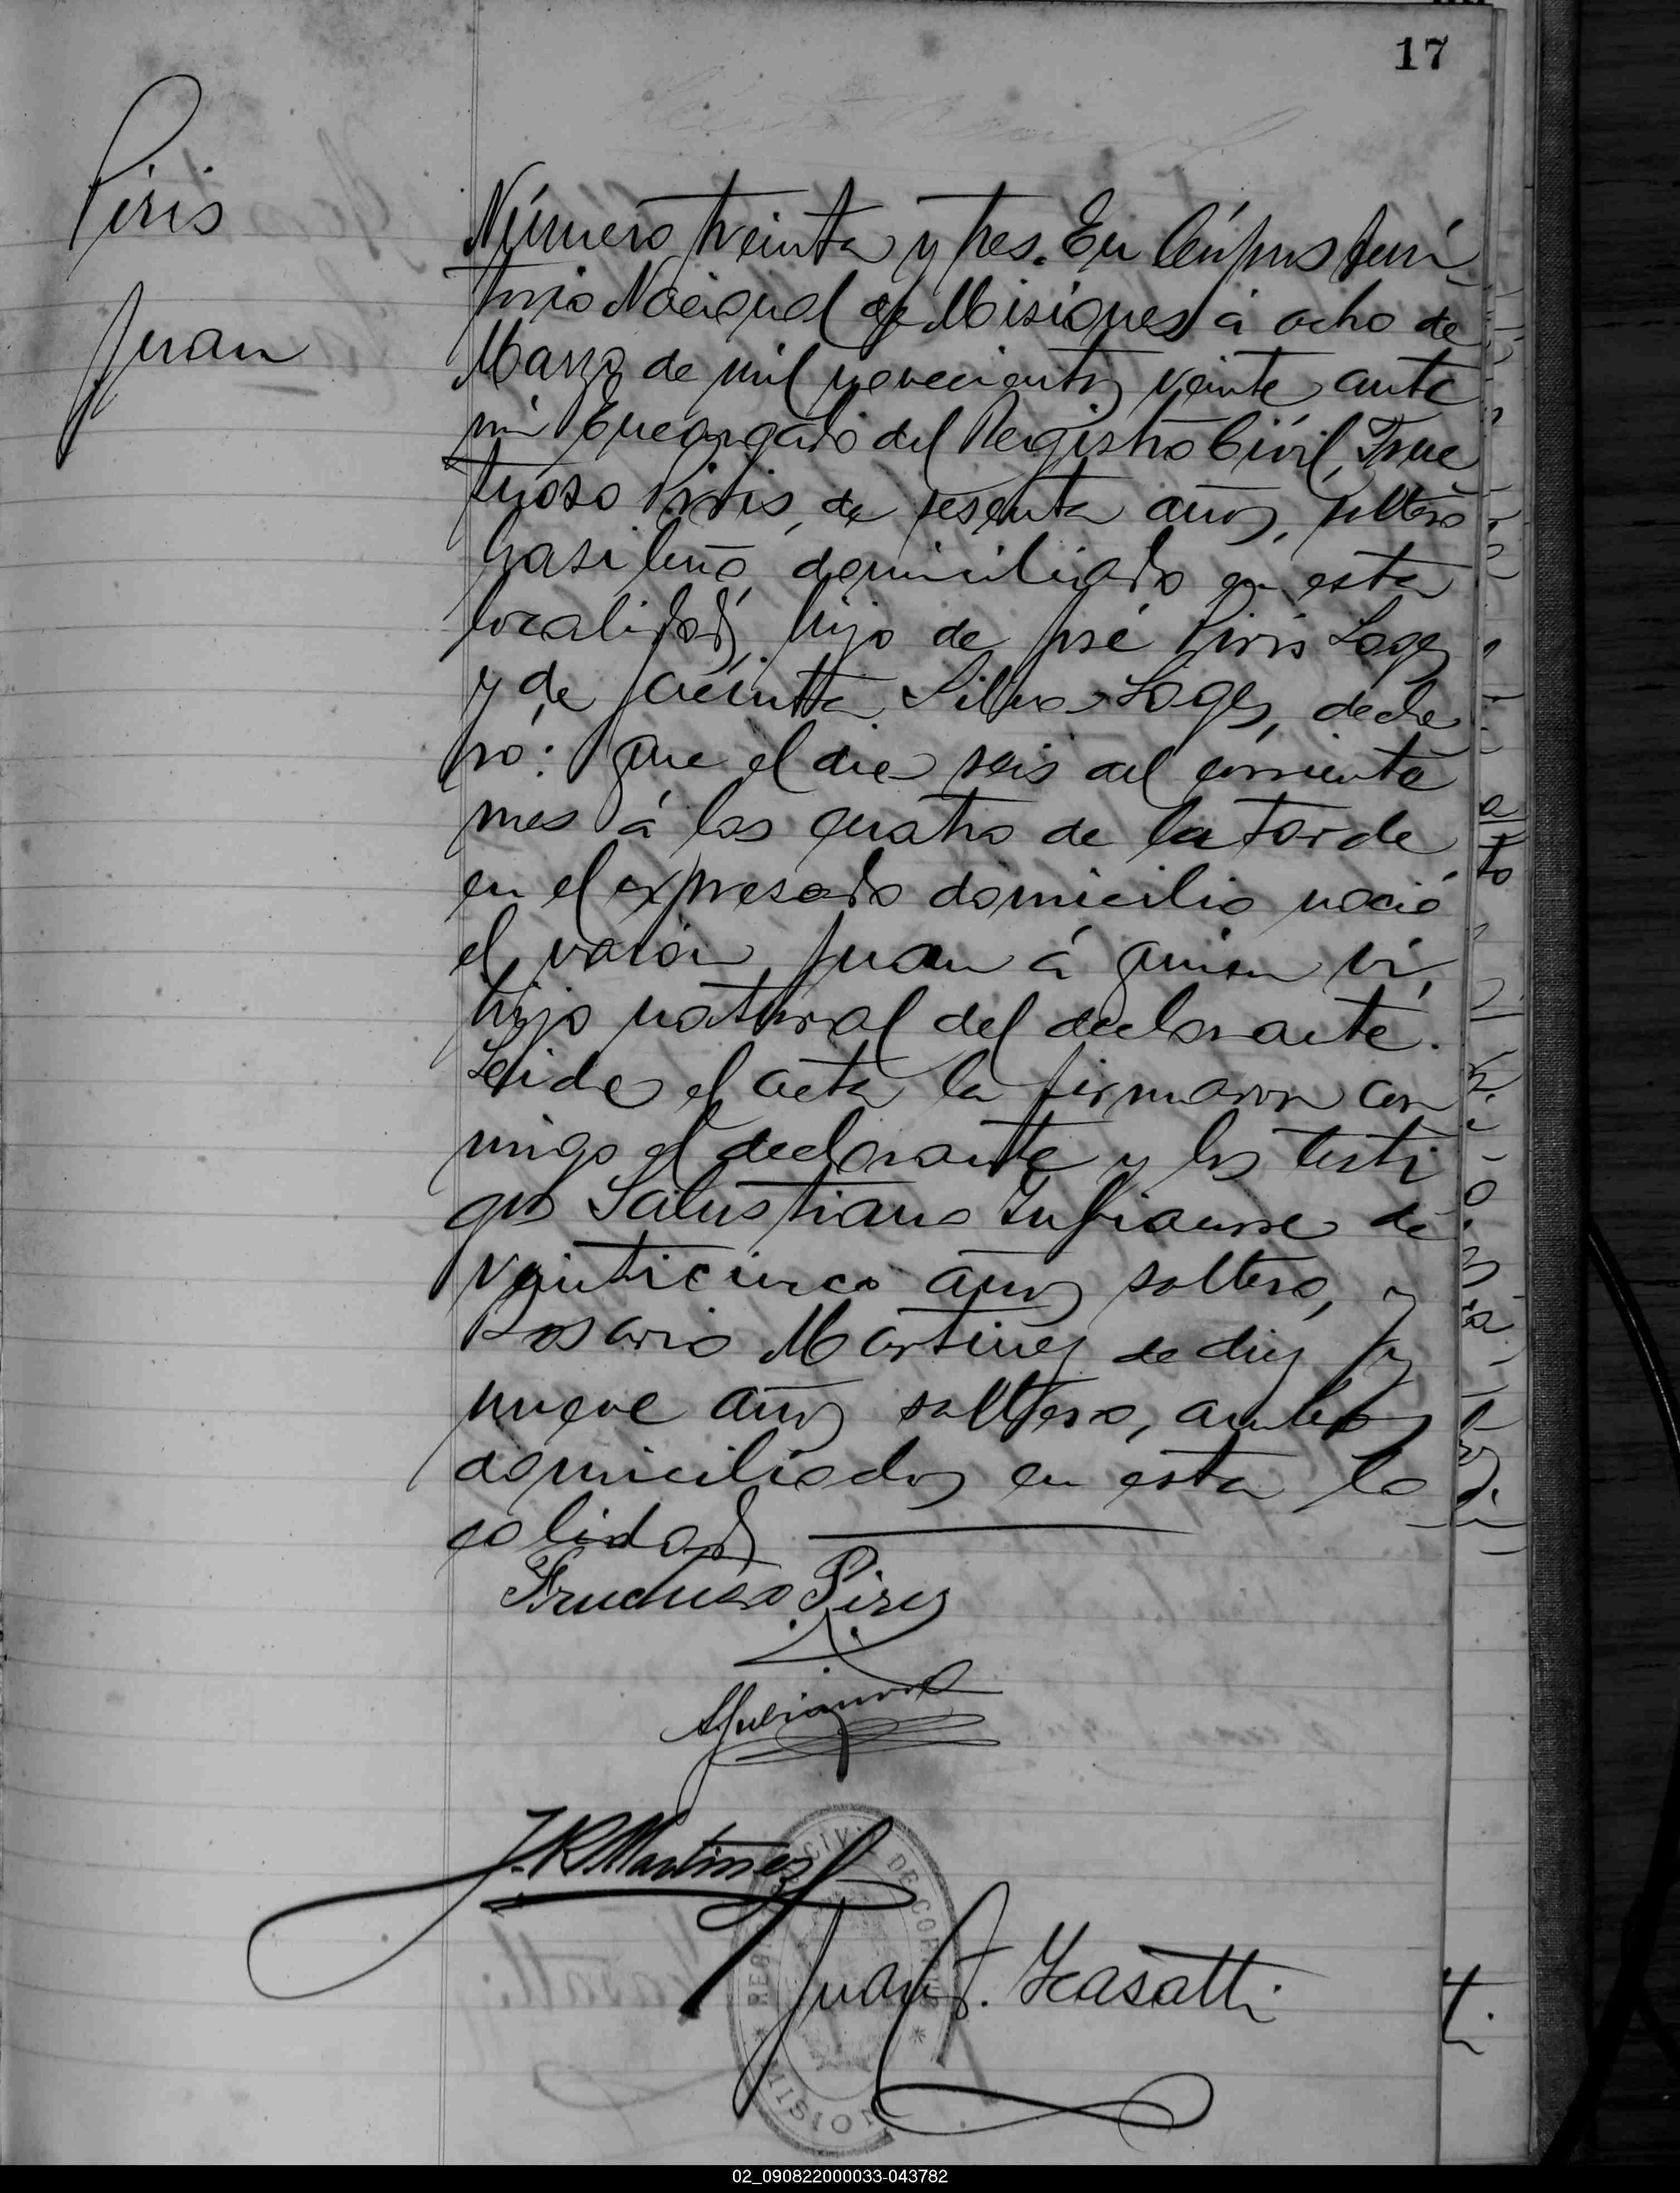 17
Piris
Juan
Número treinta y tres. En Córpus terri
torio Nacional de Misiones á ocho de
Marzo de mil novecientos veinte ante
mi Encargado del Registro Civil, Fruc
tuoso Piris, de sesenta años, soltero
brasileño, domiciliado en esta
localidad, hijo de José Piris Lages
y de Jacinta Silva Lages, decla
ró: Que el dia seis del corriente
mes á las cuatro de la tarde
en el expresado domicilio nació
el varón Juan á quien vi,
hijo natural del declarante.
Leida el acta la firmaron con
migo el declarante y los testi
gos Salustiano de
veinticinco años soltero, y
Rosario Martinez de diez y
nueve años soltero, ambos
domiciliados en esta lo
calidad
Fructuoso Pires
J. R. Martinez
REG CIVIL DE CORPUS
MISIONES
Juan F.
02_090822000033-043782